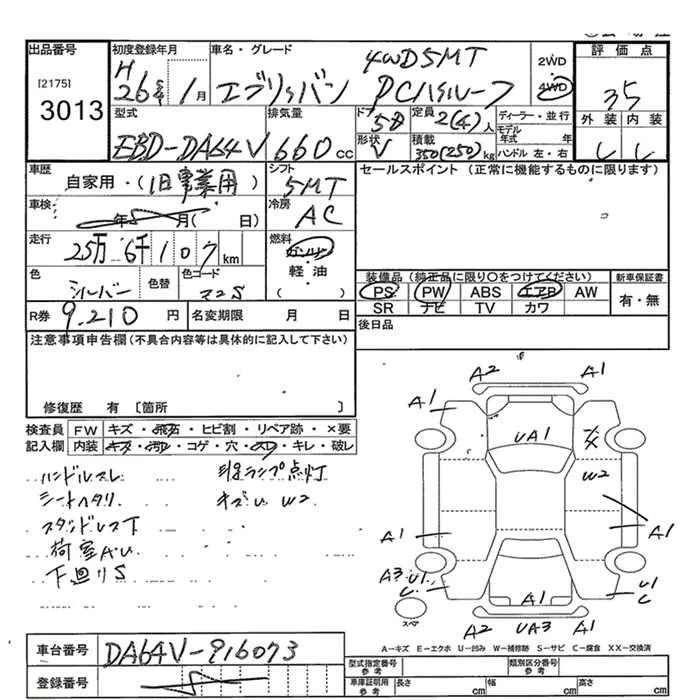 出品番号 [2175] 3013
初度登録年月 H 26年 1月
車名・グレード エブリィバン 4WD5MT PCハイルーフ
2WD 4WD
評価点 3.5
外装 内装
型式 EBD-DA64V
排気量 660 cc
ドア 5D
形状 V
定員 2(4)人
積載 350(250)kg
ディーラー・並行
モデル年式 年
ハンドル 左・右
車歴 自家用・(旧事業用)
シフト 5MT
セールスポイント (正常に機能するものに限ります)
車検 年 月( 日)
冷房 AC
走行 25万 6千107 km
燃料 ガソリン 軽油 ( )
色 シルバー 色替 色コード Z2S
装備品(純正品に限り○をつけてください)
PS PW ABS エアB AW
SR ナビ TV カワ
新車保証書 有・無
R券 9.210 円 名変期限 月 日
後日品
注意事項申告欄(不具合内容等は具体的に記入して下さい)
修復歴 有 〔箇所 〕
検査員 FW キズ・飛石・ヒビ割・リペア跡・×要
記入欄 内装 キズ・汚れ・コゲ・穴・スレ・キレ・破レ
ハンドルスレ
シートヘタリ
荷室A.U
下廻りS
ランプ点灯
キズU W2
A2 A1
A1 UA1
W2
A1 A1
A3 U1 C
A1
U1 C
スペア
A2 UA3 A1
A-キズ E-エクボ U-凹み W-補修跡 S-サビ C-腐食 XX-交換済
車台番号 DA64V-916073
登録番号
型式指定番号 参考 類別区分番号 参考
車庫証明用 参考 長さ cm 幅 cm 高さ cm